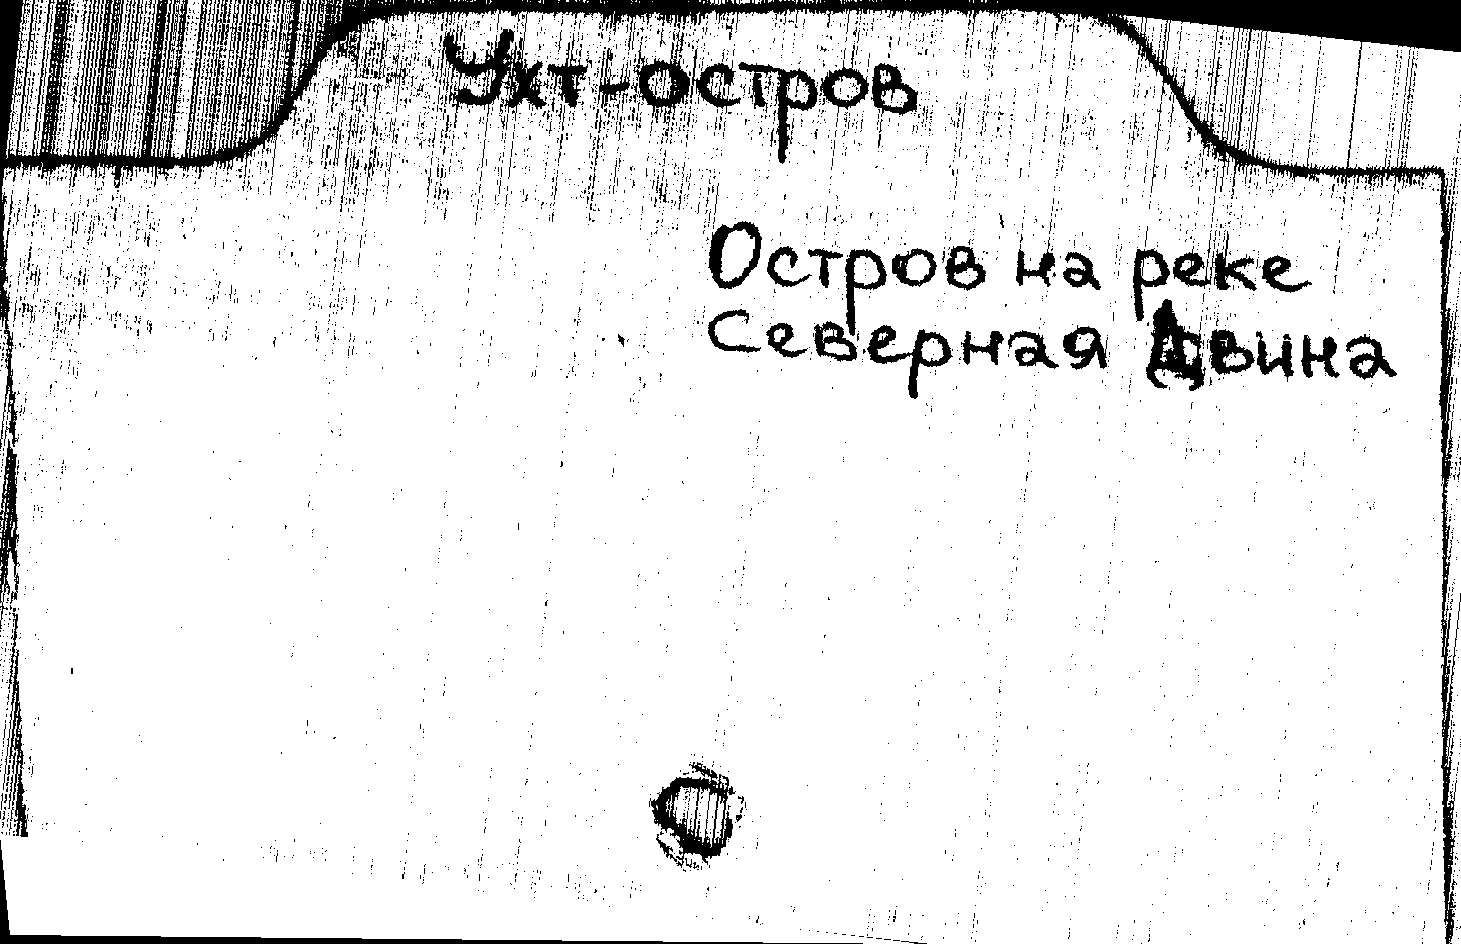 Ухт-остров
Остров на реке
Северная Двина